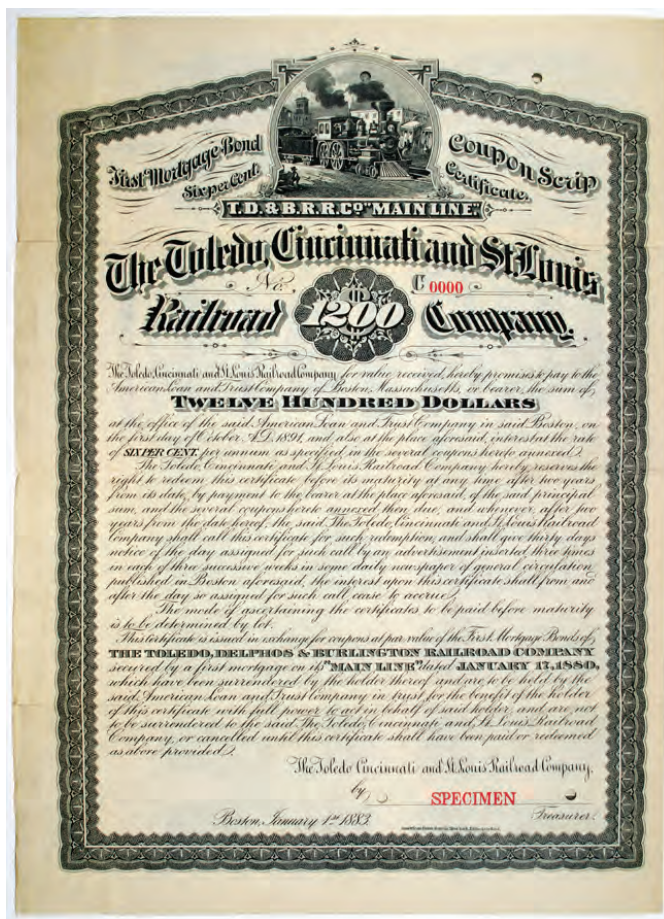 First Mortgage Bond
Six per Cent.
Coupon Scrip
Certificate.
T.D. & B.R.R.CO "MAIN LINE"
The Toledo, Cincinnati and St. Louis
No. C 0000
Railroad $1200 Company.
The Toledo, Cincinnati and St. Louis Railroad Company, for value received, hereby promises to pay to the
American Loan and Trust Company of Boston, Massachusetts, or bearer, the sum of
TWELVE HUNDRED DOLLARS
at the office of the said American Loan and Trust Company in said Boston, on
the first day of October A.D. 1891, and also at the place aforesaid, interest at the rate
of SIX PER CENT. per annum as specified in the several coupons hereto annexed.
The Toledo, Cincinnati, and St. Louis Railroad Company hereby reserves the
right to redeem this certificate before its maturity at any time after two years
from its date, by payment to the bearer at the place aforesaid, of the said principal
sum, and the several coupons hereto annexed then due, and whenever, after two
years from the date hereof, the said The Toledo, Cincinnati and St. Louis Railroad
Company shall call this certificate for such redemption, and shall give thirty days
notice of the day assigned for such call by an advertisement inserted three times
in each of three successive weeks in some daily newspaper of general circulation
published in Boston aforesaid, the interest upon this certificate shall from and
after the day so assigned for such call, cease to accrue.
The mode of ascertaining the certificates to be paid before maturity
is to be determined by lot.
This Certificate is issued in exchange for coupons at par value of the First Mortgage Bonds of
THE TOLEDO, DELPHOS & BURLINGTON RAILROAD COMPANY
secured by a first mortgage on its "MAIN LINE" dated JANUARY 17, 1880,
which have been surrendered by the holder thereof and are to be held by the
said American Loan and Trust Company in trust for the benefit of the holder
of this certificate with full power to act in behalf of said holder, and are not
to be surrendered to the said The Toledo, Cincinnati, and St. Louis Railroad
Company, or cancelled until this certificate shall have been paid or redeemed
as above provided.
The Toledo Cincinnati and St. Louis Railroad Company,
by SPECIMEN
Treasurer.
Boston, January 1st 1883.